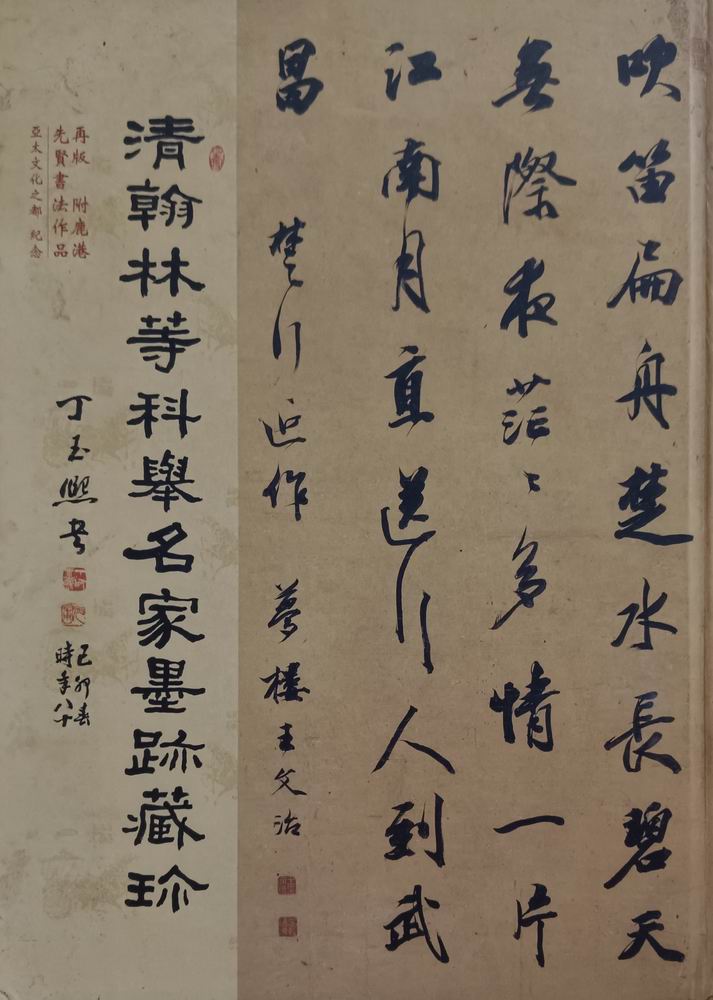 吹笛扁舟楚水長碧天
無際夜茫〻多情一片
江南月直送行人到武
昌
楚行近作 夢樓王文治
清翰林等科舉名家墨跡藏珍
再版 附鹿港
先賢書法作品
亞太文化之都 紀念
丁玉熙書
己卯春
時年八十